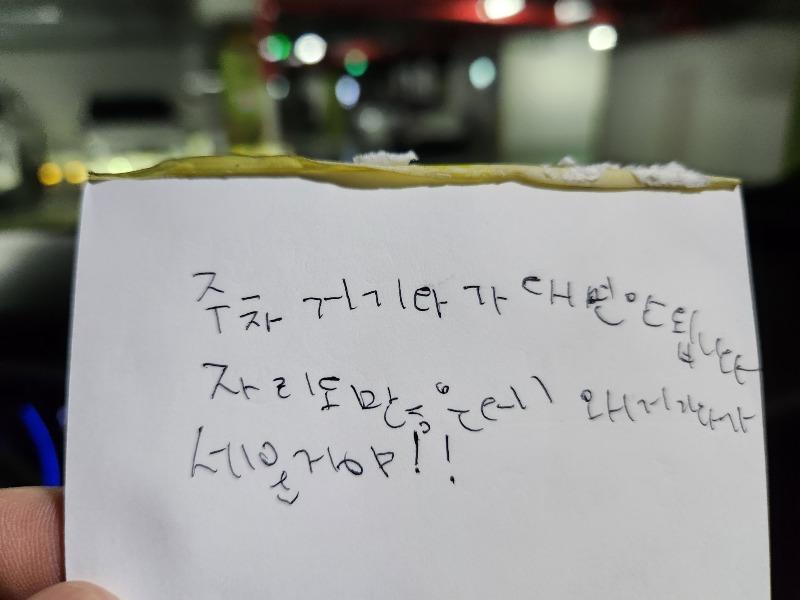 주차 거기다가 대면안됩니다
자리도많은데 왜저기다가
세운거야!!